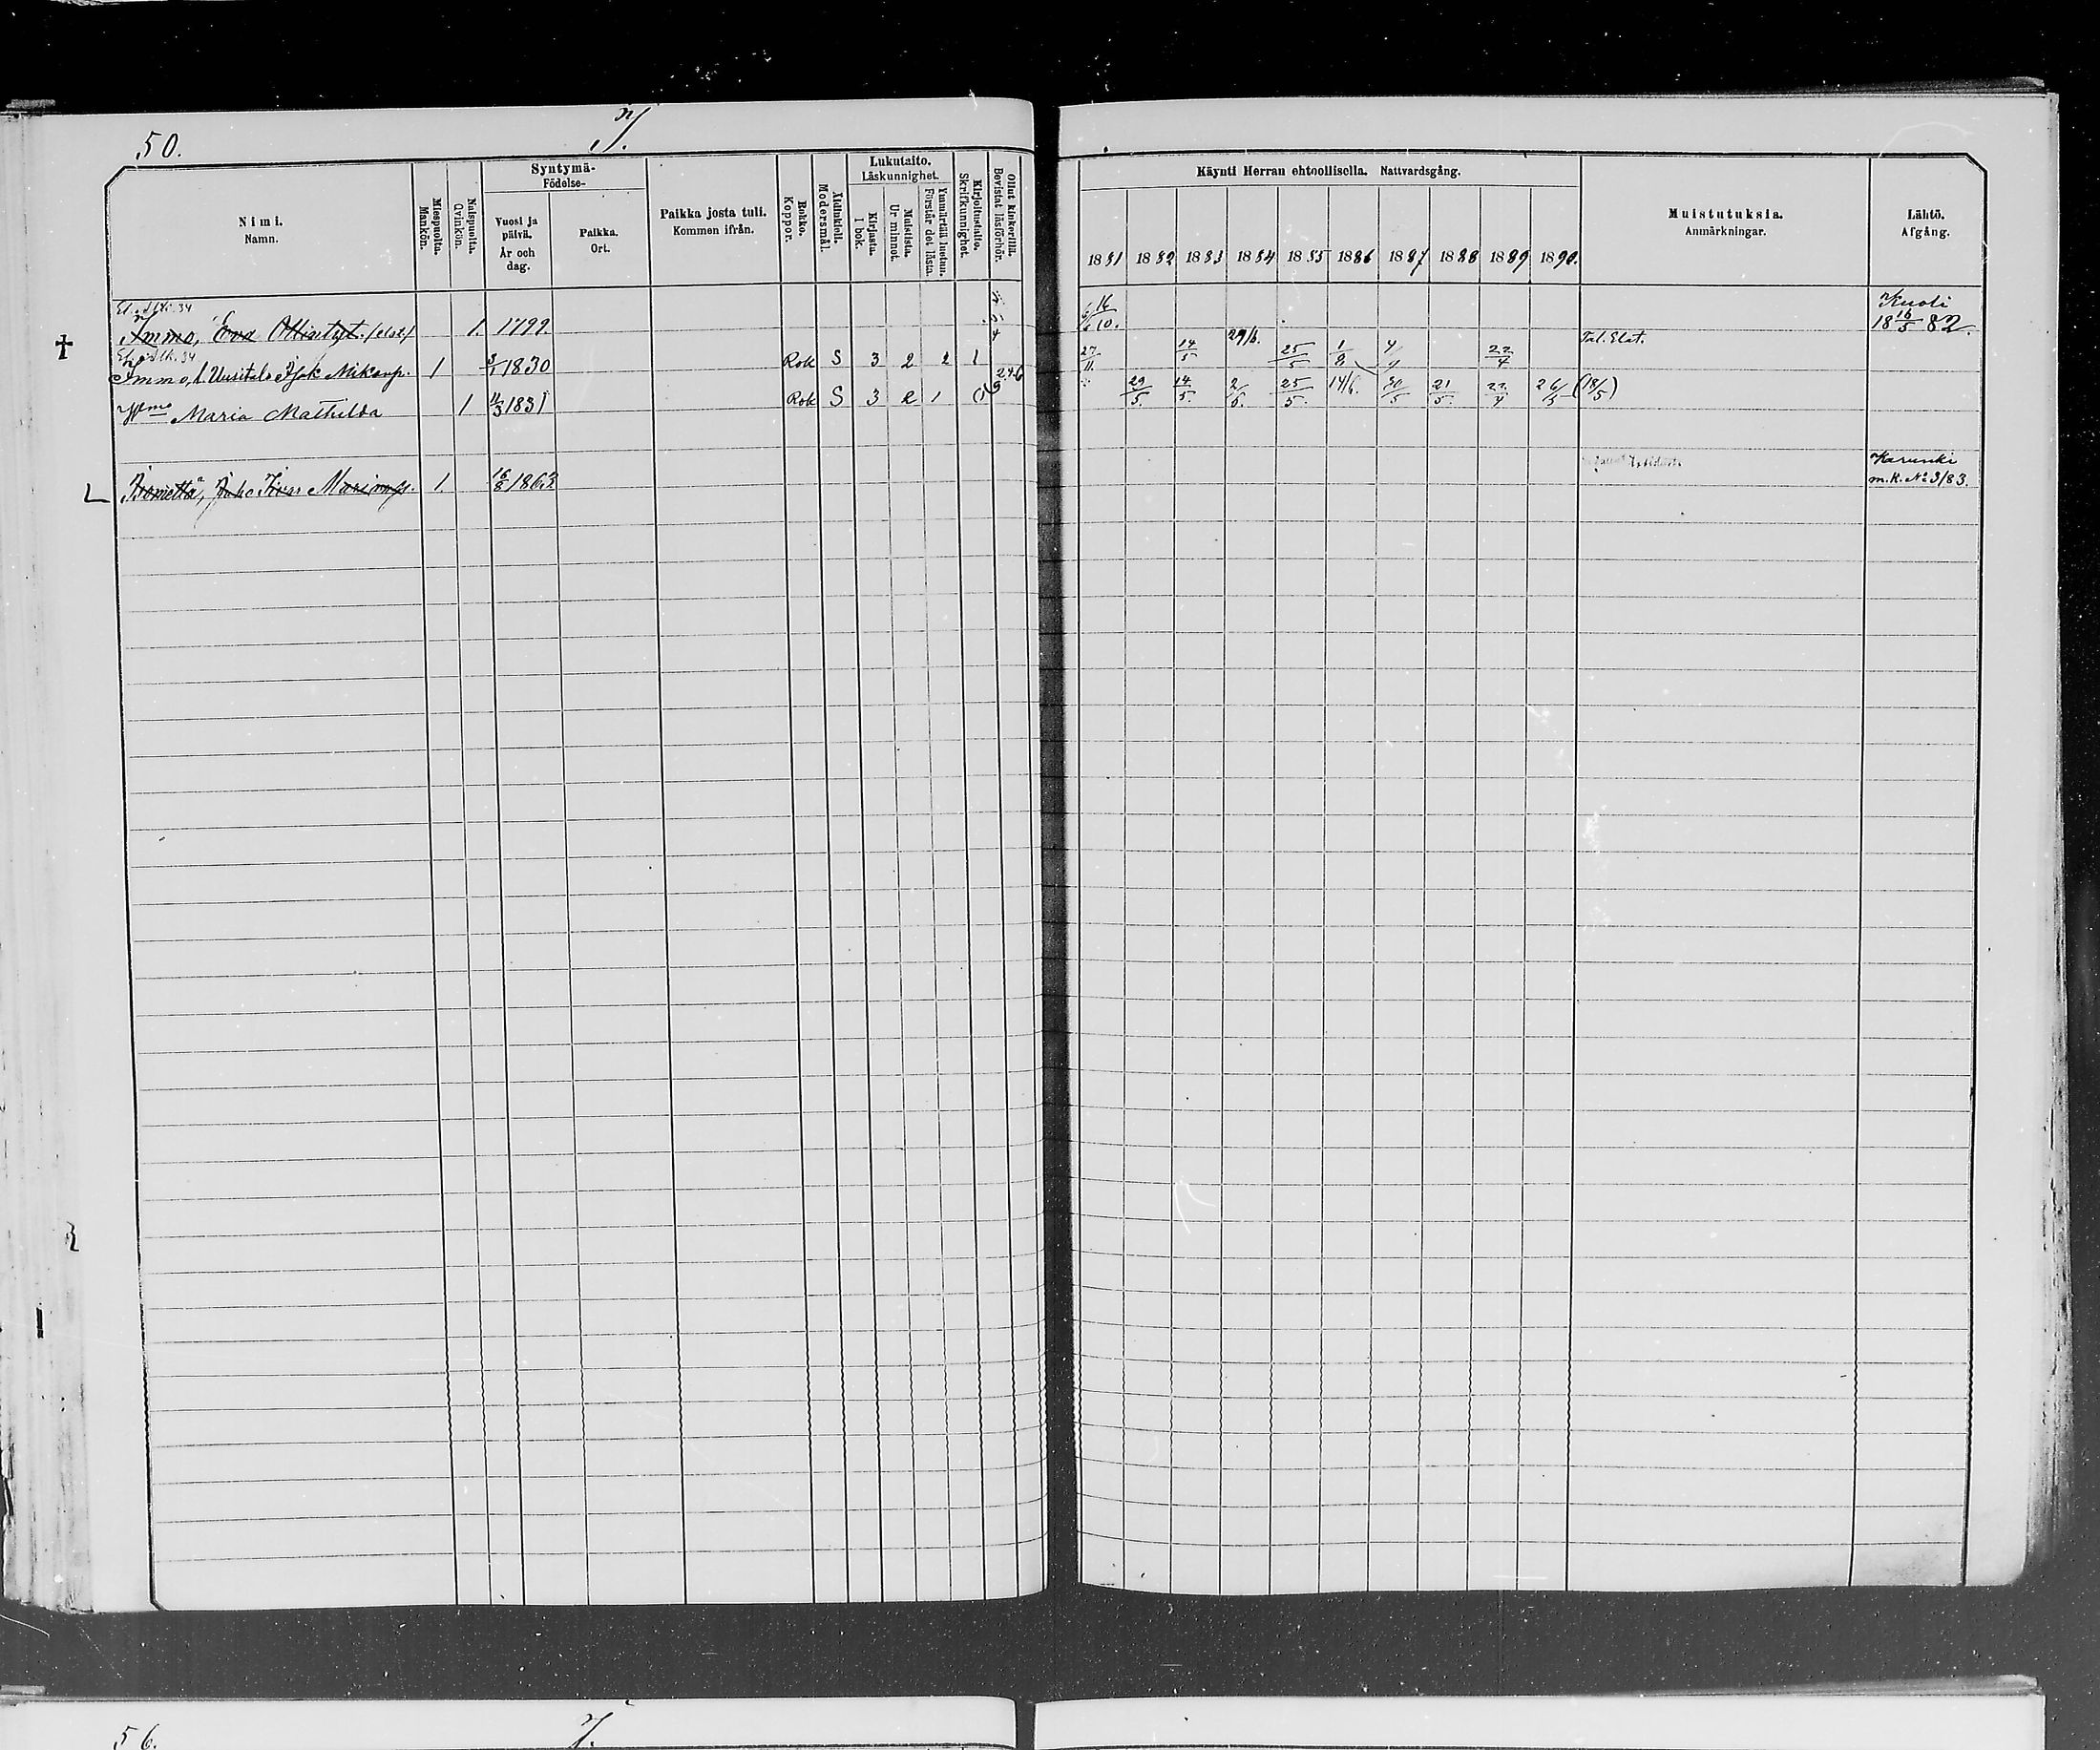 50.
I.
Nimi.
Namn.
Miespuolta.
Mankön.
Naispuolta.
Qvinkön.
Syntymä-
Födelse-
Vuosi ja
päivä.
År och
dag.
Paikka.
Ort.
Paikka josta tuli.
Kommen ifrån.
Rokko.
Koppor.
Äidinkieli.
Modersmål.
Lukutaito.
Läskunnighet.
Kirjasta.
I bok.
Muistista.
Ur minnet.
Ymmärtää luetun.
Förstår det lästa.
Kirjoitustaito.
Skrifkunnighet.
Ollut kinkerillä.
Bevistat läsförhör.
Käynti Herran ehtoollisella. Nattvardsgång.
1881 1882 1883 1884 1885 1886 1887 1888 1889 1890.
Muistutuksia.
Anmärkningar.
Lähtö.
Afgång.
Immo, Eva (elät.) 1. 1792 16/10. Kuoli
18 16/5 82.
Immo, l. Uusitalo Isak Mikonp. 1 3/1 1830 Rok S 3 2 2 1 27/11. 14/5 29/6. 25/5 1/8 22/4 Tal. Elät.
Vmo Maria Mathilda 1 11/3 1831 Rok S 3 2 1 29/5. 14/5. 2/6. 25/5. 14/6. 30/5 21/5. 22/4 26/5 (18/5)
1. 16/8 1863 Karunki
m.k. No 3/83.
56.
I.